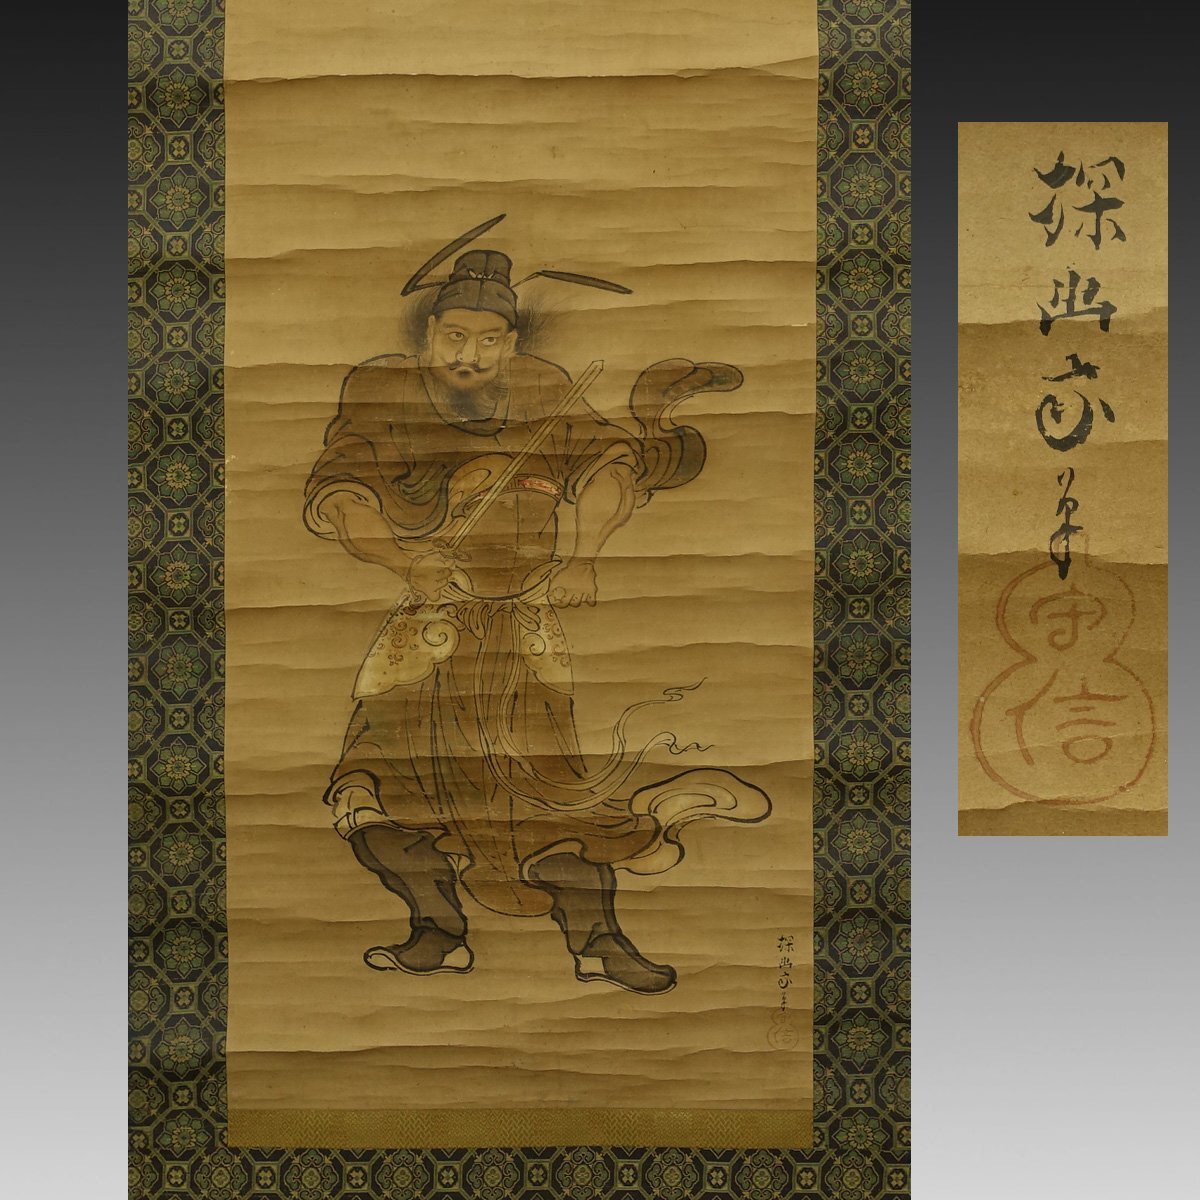 探幽斎筆
守信
探幽斎筆
守信